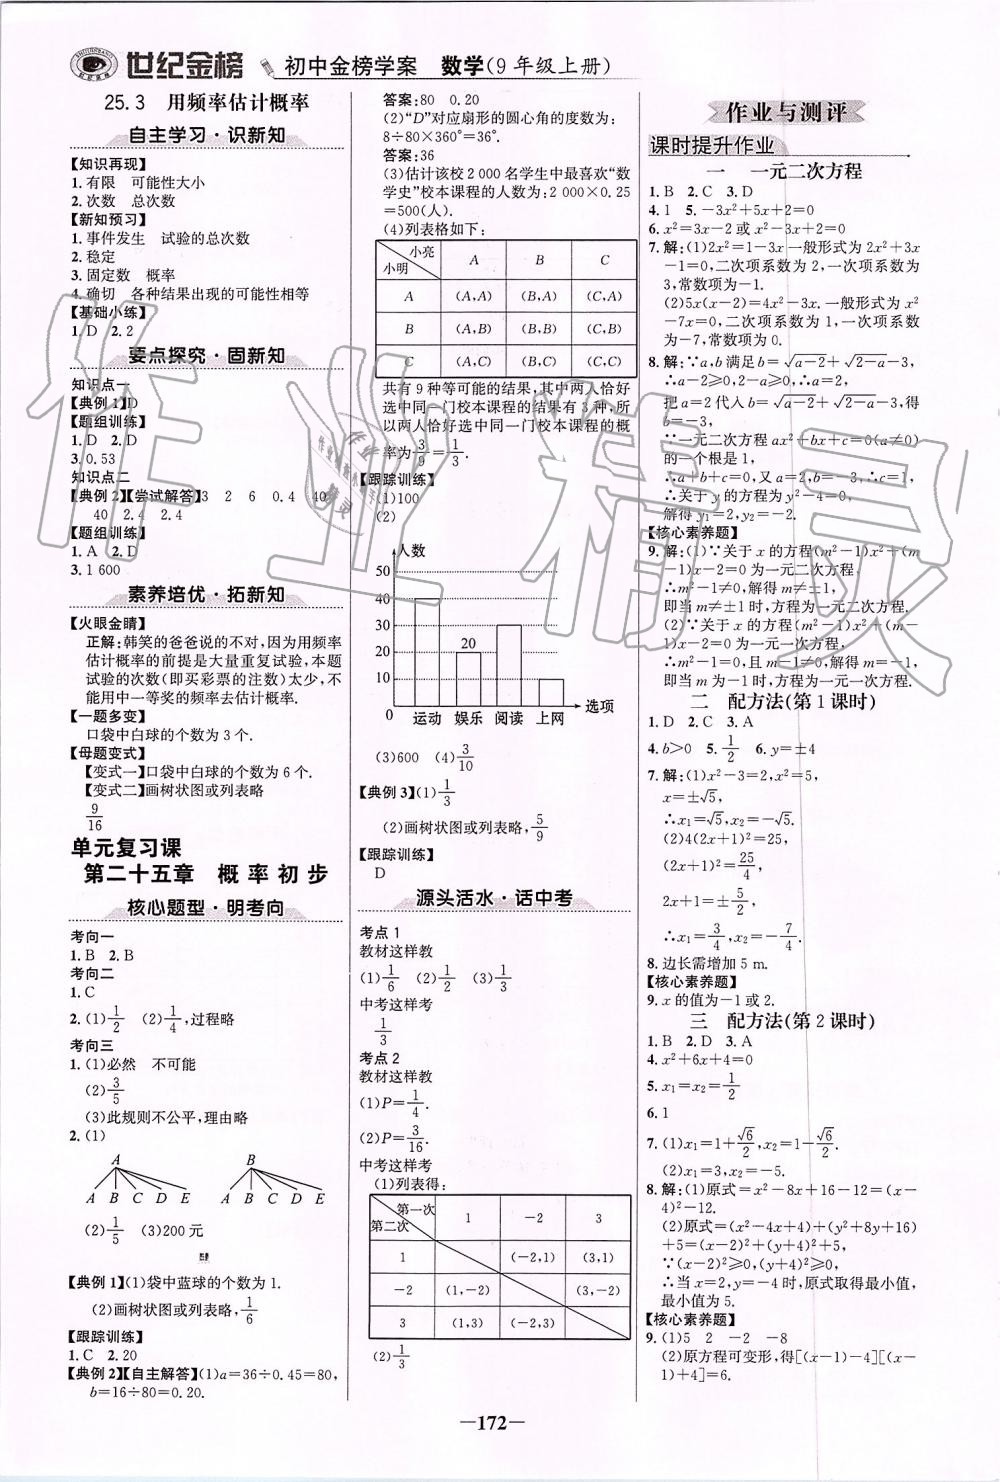 世纪金榜 初中金榜学案 数学(9年级上册)
25.3 用频率估计概率
自主学习·识新知
【知识再现】
1.有限 可能性大小
2.次数 总次数
【新知预习】
1.事件发生 试验的总次数
2.稳定
3.固定数 概率
4.确切 各种结果出现的可能性相等
【基础小练】
1.D 2.2
要点探究·固新知
知识点一
【典例1】D
【题组训练】
1.D 2.D
3.0.53
知识点二
【典例2】【尝试解答】3 2 6 0.4 40
40 2.4 2.4
【题组训练】
1.A 2.D
3.1 600
素养培优·拓新知
【火眼金睛】
正解:韩笑的爸爸说的不对,因为用频率
估计概率的前提是大量重复试验,本题
试验的次数(即买彩票的注数)太少,不
能用中一等奖的频率去估计概率.
【一题多变】
口袋中白球的个数为3个.
【母题变式】
【变式一】口袋中白球的个数为6个.
【变式二】画树状图或列表略
9/16
单元复习课
第二十五章 概率初步
核心题型·明考向
考向一
1.B 2.B
考向二
1.C
2.(1)1/2 (2)1/4,过程略
考向三
1.(1)必然 不可能
(2)3/5
(3)此规则不公平,理由略
2.(1)
A B
A B C D E A B C D E
(2)1/5 (3)200元
【典例1】(1)袋中蓝球的个数为1.
(2)画树状图或列表略,1/6
【跟踪训练】
1.C 2.20
【典例2】【自主解答】(1)a=36÷0.45=80,
b=16÷80=0.20.
答案:80 0.20
(2)“D”对应扇形的圆心角的度数为:
8÷80×360°=36°.
答案:36
(3)估计该校2 000名学生中最喜欢“数
学史”校本课程的人数为:2 000×0.25
=500(人).
(4)列表格如下:
小亮 小明 A B C
A (A,A) (B,A) (C,A)
B (A,B) (B,B) (C,B)
C (A,C) (B,C) (C,C)
共有9种等可能的结果,其中两人恰好
选中同一门校本课程的结果有3种,所
以两人恰好选中同一门校本课程的概
率为3/9=1/3.
【跟踪训练】
(1)100
(2)
人数
50
40
30
20 20
10
0 运动 娱乐 阅读 上网 选项
(3)600 (4)3/10
【典例3】(1)1/3
(2)画树状图或列表略,5/9
【跟踪训练】
D
源头活水·话中考
考点1
教材这样教
(1)1/6 (2)1/2 (3)1/3
中考这样考
1/3
考点2
教材这样教
(1)P=1/4.
(2)P=3/16.
中考这样考
(1)列表得:
第一次 第二次 1 -2 3
1 (-2,1) (3,1)
-2 (1,-2) (3,-2)
3 (1,3) (-2,3)
(2)1/3
作业与测评
课时提升作业
一 一元二次方程
1.B 2.C 3.D
4.1 5.-3x²+5x+2=0
6.x²=3x-2或x²-3x+2=0
7.解:(1)2x²=1-3x一般形式为2x²+3x
-1=0,二次项系数为2,一次项系数为
3,常数项为-1.
(2)5x(x-2)=4x²-3x.一般形式为x²
-7x=0,二次项系数为1,一次项系数
为-7,常数项为0.
8.解:∵a,b满足b=√(a-2)+√(2-a)-3,
∴a-2≥0,2-a≥0,∴a=2,
把a=2代入b=√(a-2)+√(2-a)-3,得
b=-3,
∵一元二次方程ax²+bx+c=0(a≠0)
的一个根是1,
∴a+b+c=0,又a=2,b=-3,∴c=1.
∴关于y的方程为y²-4=0.
解得y₁=2,y₂=-2.
【核心素养题】
9.解:(1)∵关于x的方程(m²-1)x²+(m
-1)x-2=0为一元二次方程,
∴m²-1≠0,解得m≠±1,
即当m≠±1时,方程为一元二次方程.
(2)∵关于x的方程(m²-1)x²+(m-
1)x-2=0为一元一次方程,
∴m²-1=0,且m-1≠0,解得m=-1,
即当m为-1时,方程为一元一次方程.
二 配方法(第1课时)
1.D 2.C 3.A
4.b>0 5.1/2 6.y=±4
7.解:(1)x²-3=2,x²=5,
x=±√5,
∴x₁=√5,x₂=-√5.
(2)4(2x+1)²=25,
(2x+1)²=25/4,
2x+1=±5/2,
∴x₁=3/4,x₂=-7/4.
8.边长需增加5 m.
【核心素养题】
9.x的值为-1或2.
三 配方法(第2课时)
1.B 2.D 3.A
4.x²+6x+4=0
5.x₁=x₂=1/2
6.1
7.(1)x₁=1+√6/2,x₂=1-√6/2.
(2)x₁=3,x₂=-5.
8.解:(1)原式=x²-8x+16-12=(x-
4)²-12.
(2)原式=(x²-4x+4)+(y²+8y+16)
+5=(x-2)²+(y+4)²+5,
∵(x-2)²≥0,(y+4)²≥0,
∴当x=2,y=-4时,原式取得最小值,
最小值为5.
【核心素养题】
9.(1)5 2 -2 -8
(2)原方程可变形,得[(x-1)-4][(x-
1)+4]=6.
—172—
作业精灵